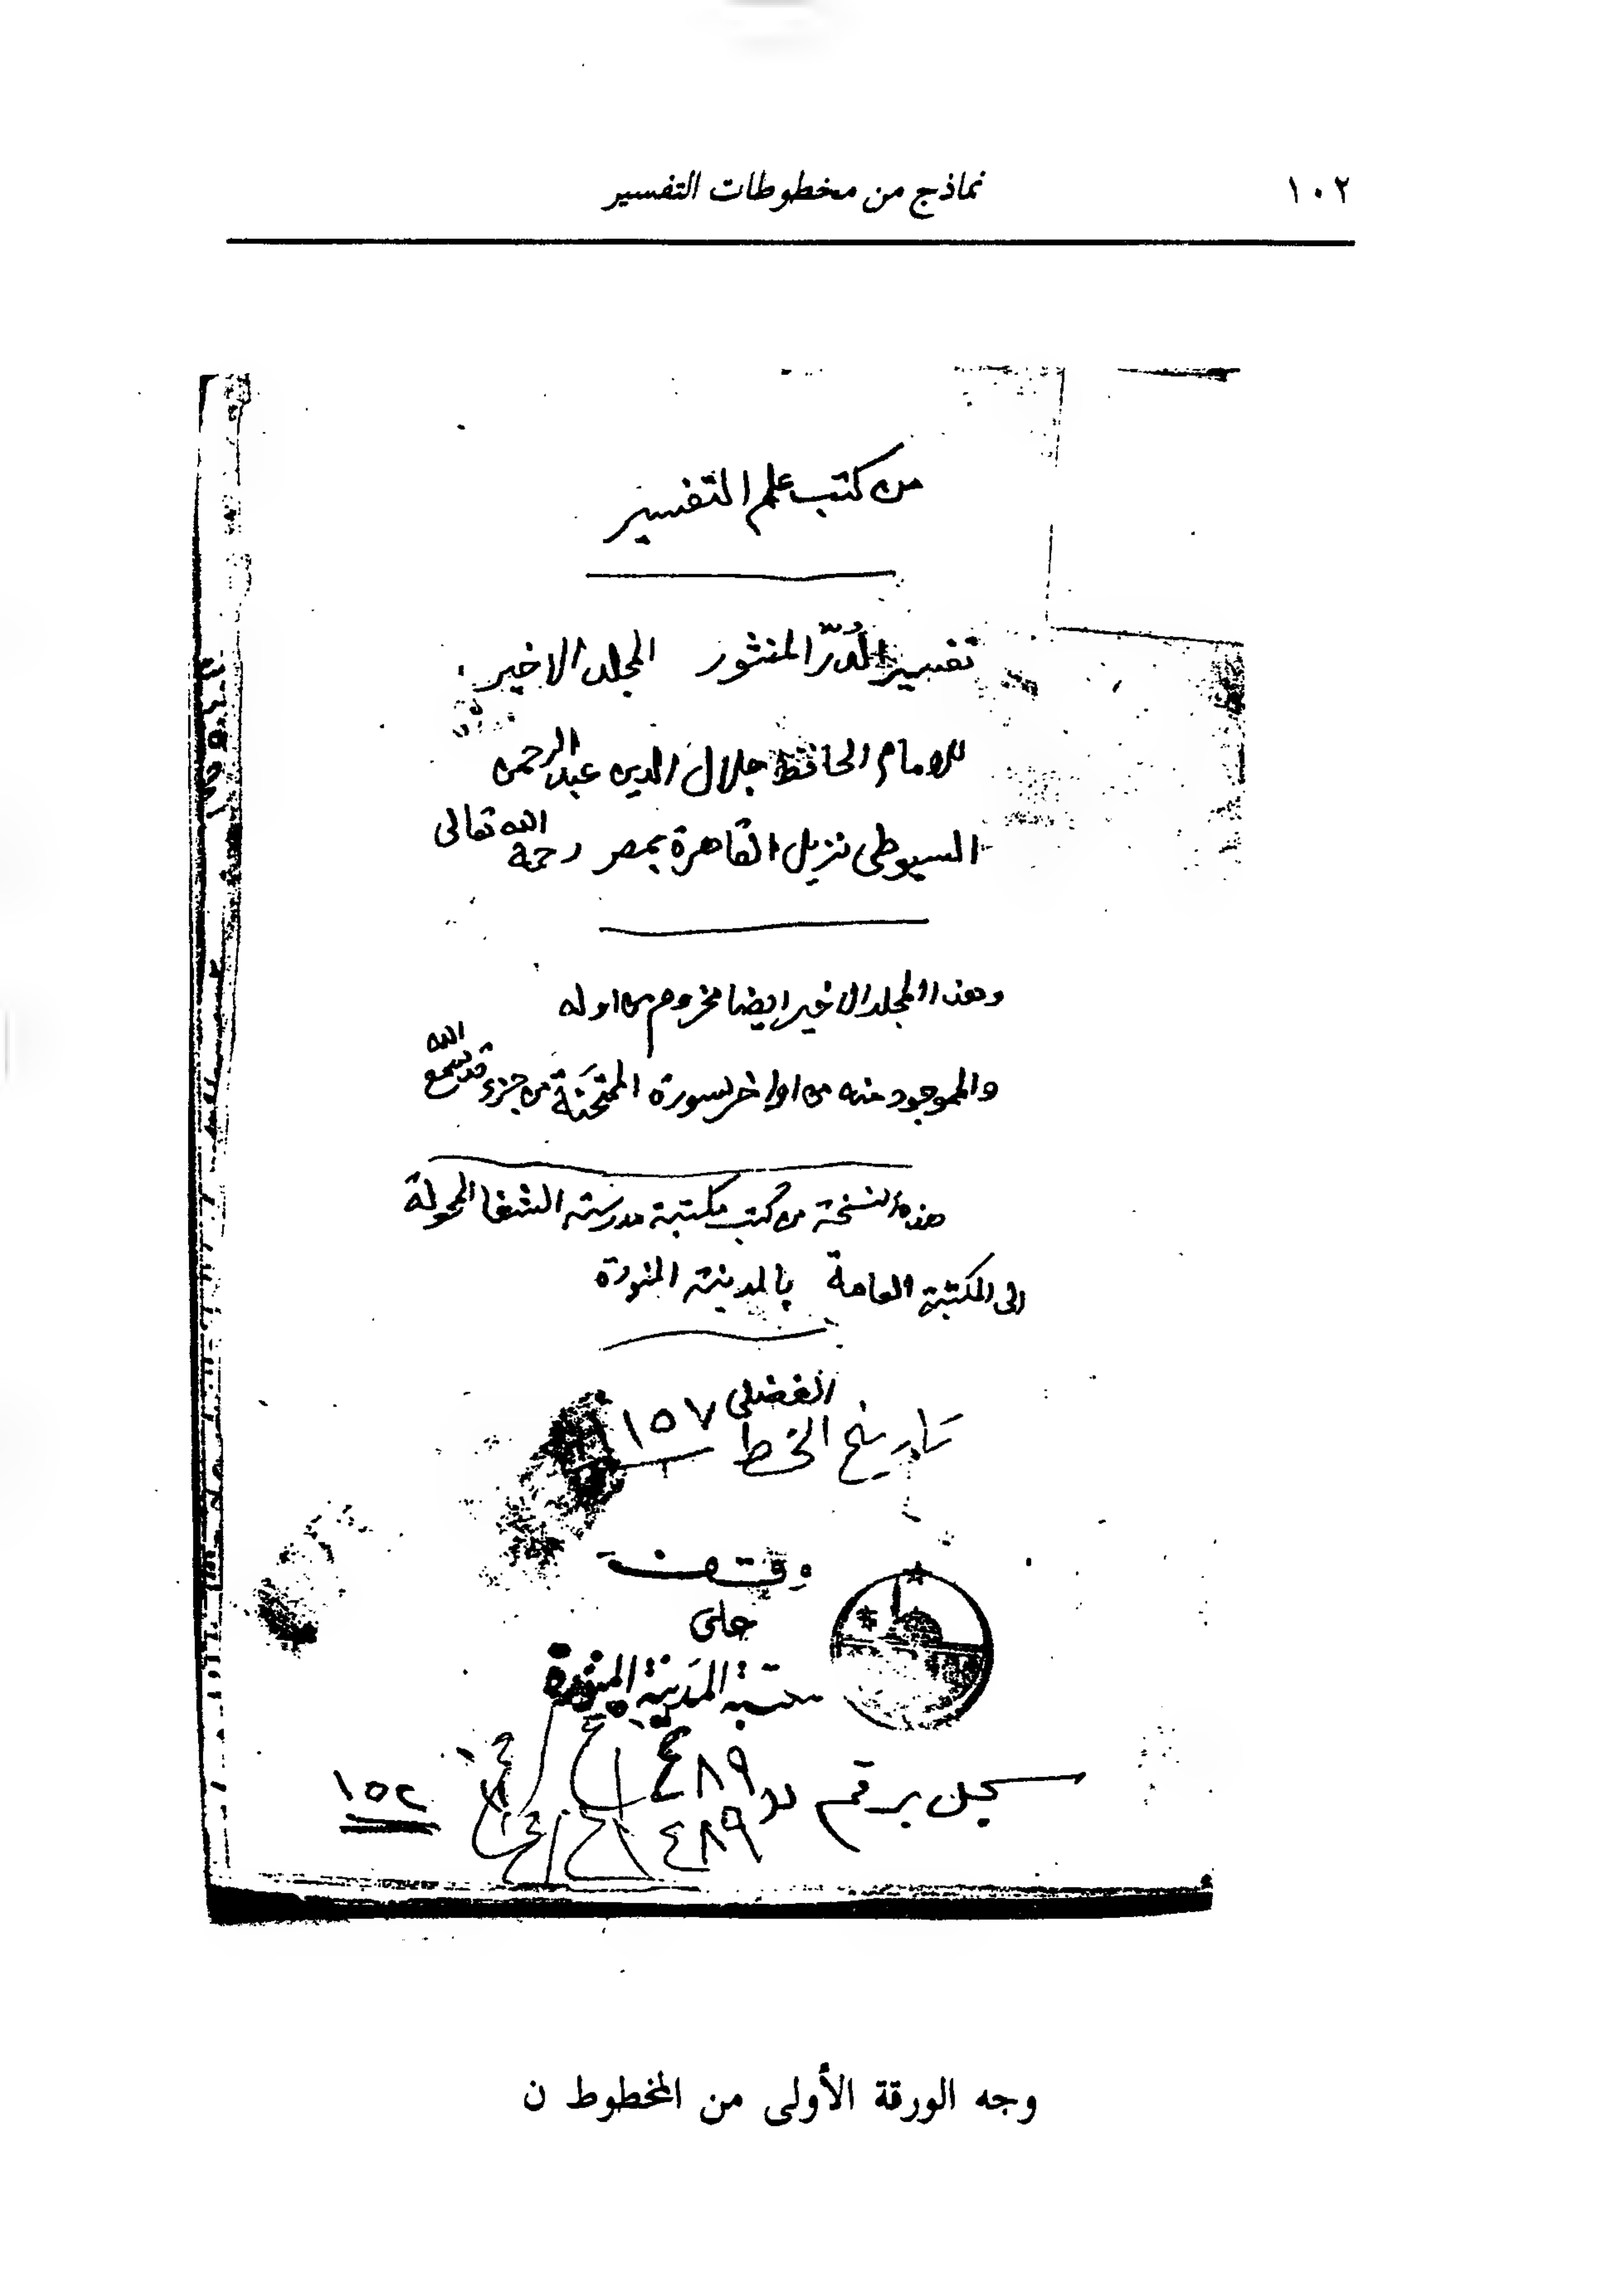 ١٠٢
نماذج من مخطوطات التفسير
من كتب علم التفسير
تفسير الدُرّ المنثور المجلد الاخير
للامام الحافظ جلال الدين عبد الرحمن
السيوطى نزيل القاهرة بمصر رحمة الله تعالى
وهذا المجلد الاخير ايضا مخروم من اوله
والموجود منه من اواخر سورة الممتحنة من جزء قد سمع الله
هذه النسخة من كتب مكتبة مدرسة الشفا المحولة
الى المكتبة العامة بالمدينة المنورة
الفضلى
تاريخ الخط
وقف
على
مكتبة المدينة المنورة
سجل برقم ٤٨٩
٤٨٩
١٥٢
وجه الورقة الأولى من المخطوط ن